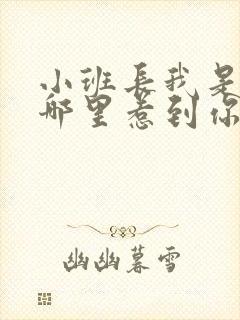 小班長我是
哪里惹到你
幽幽暮雪